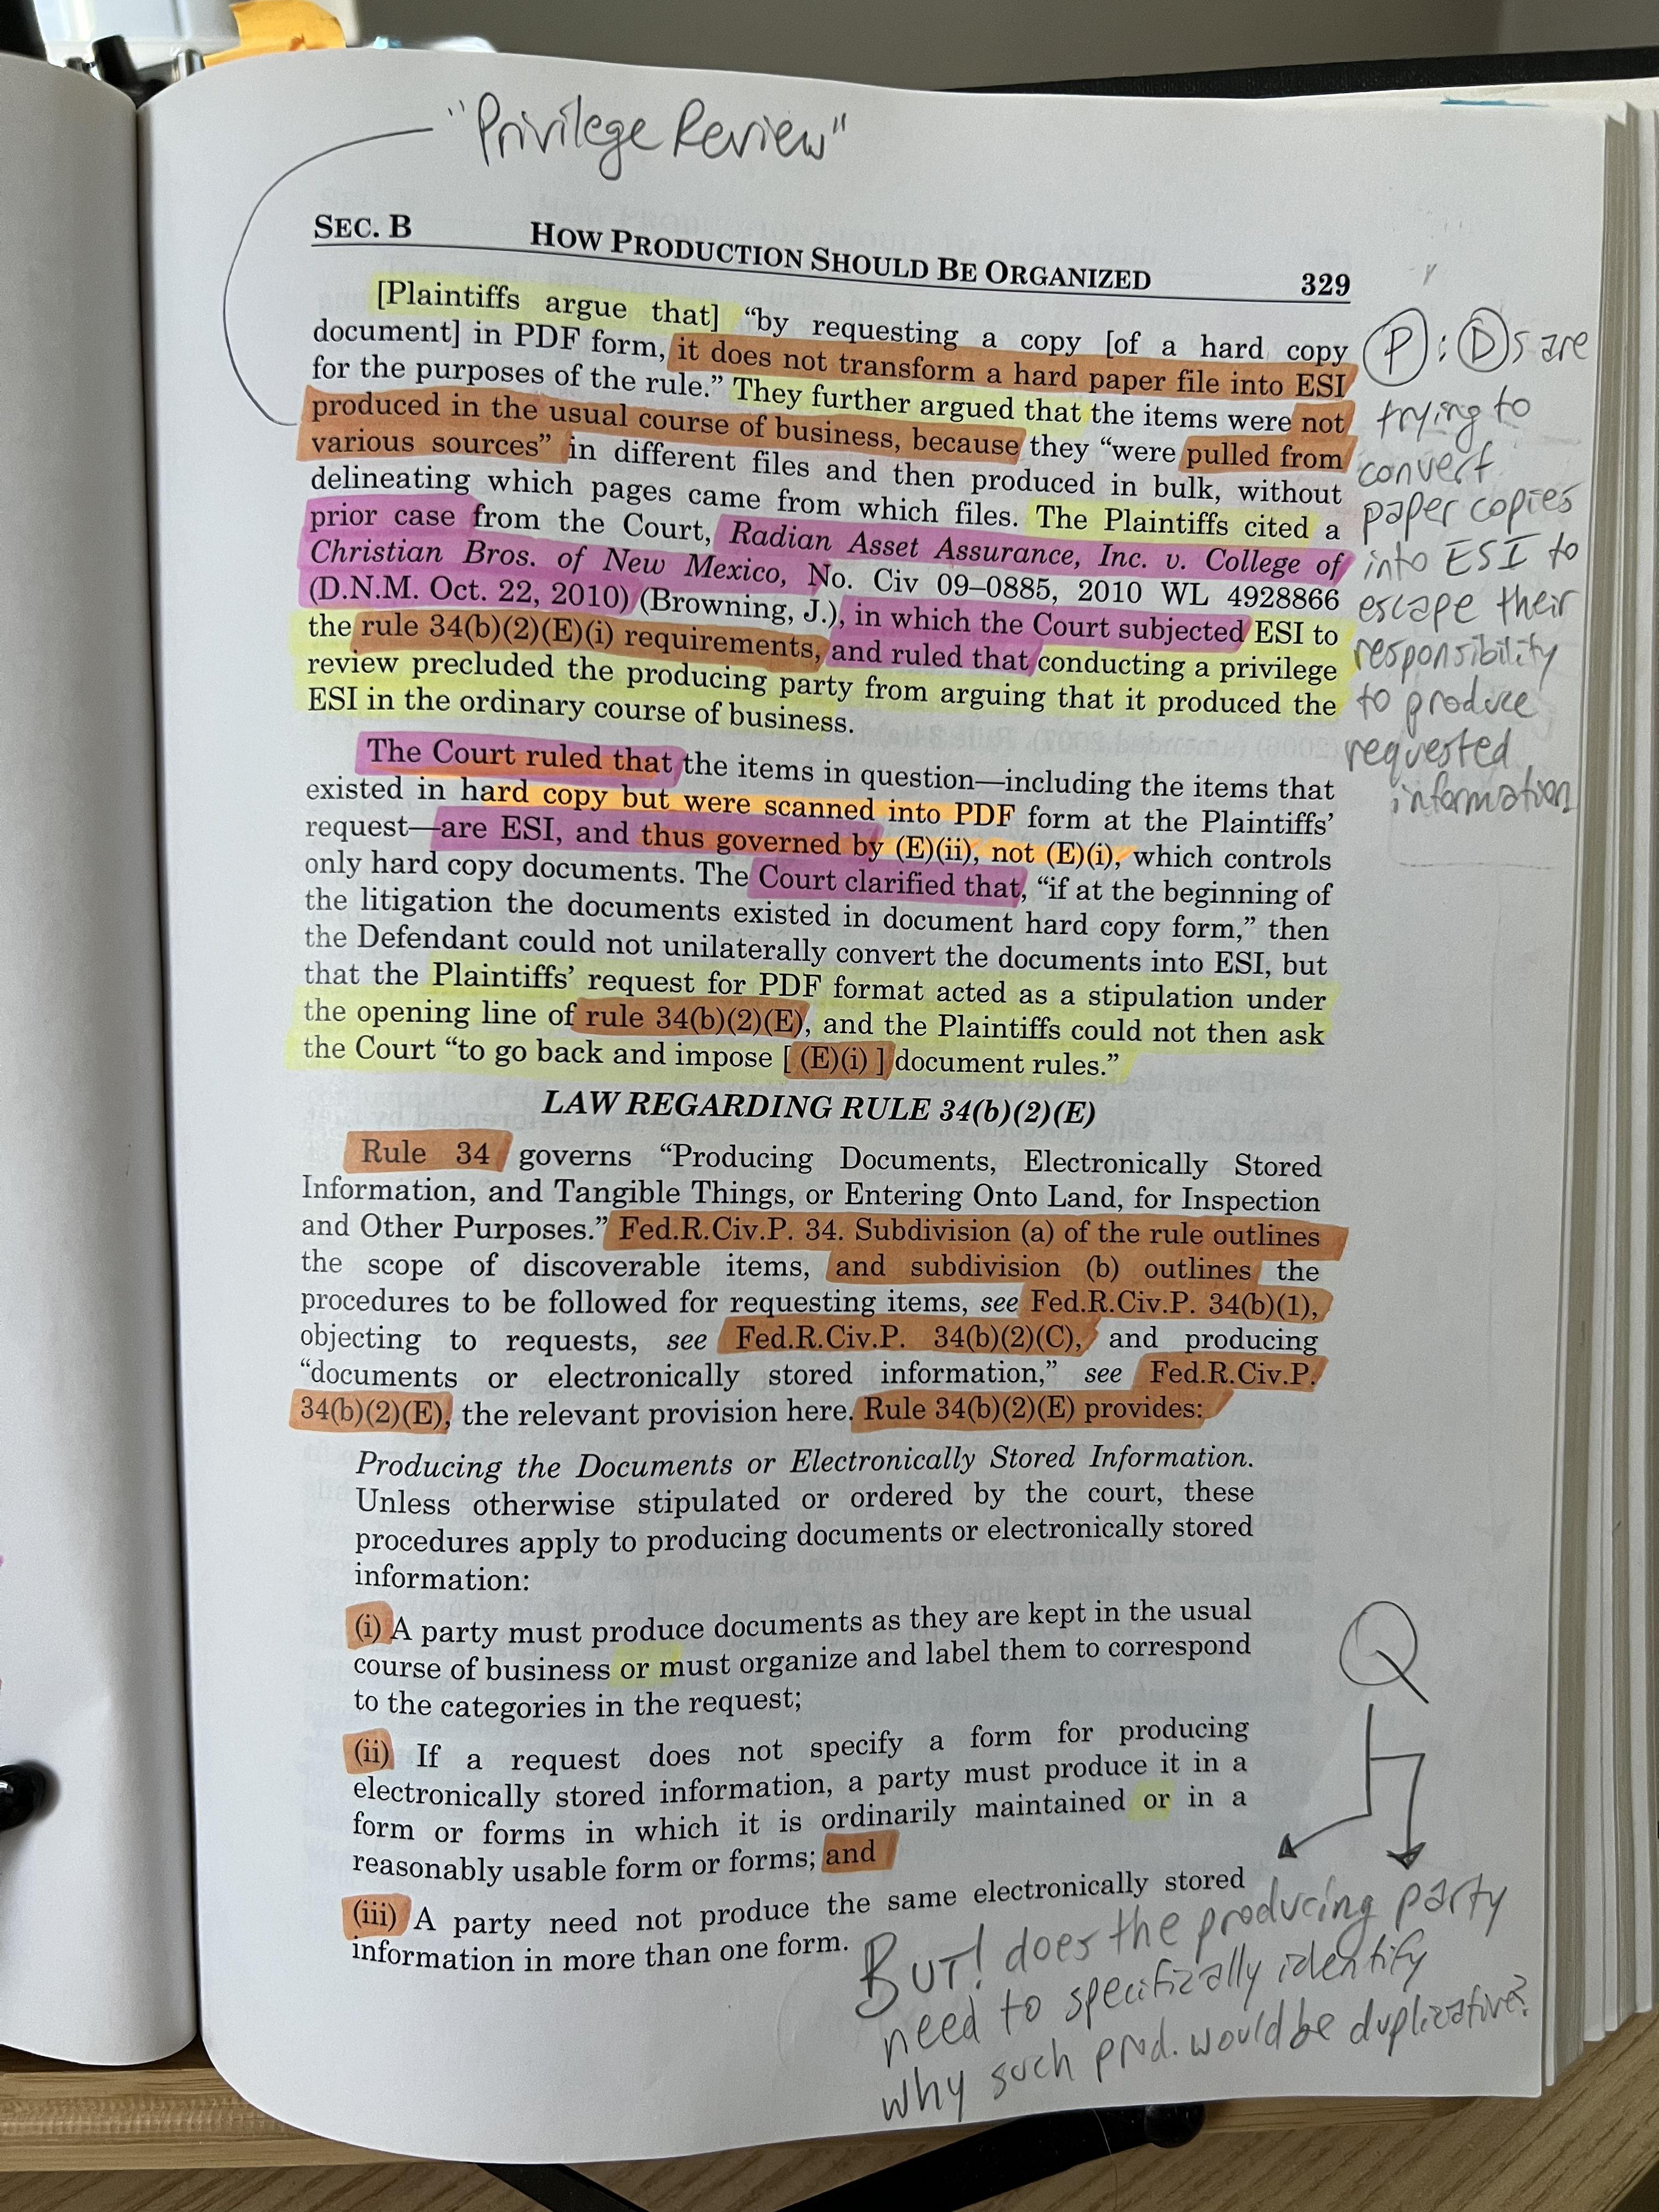 "Privilege Review"
SEC. B HOW PRODUCTION SHOULD BE ORGANIZED 329
[Plaintiffs argue that] “by requesting a copy [of a hard copy
document] in PDF form, it does not transform a hard paper file into ESI
for the purposes of the rule.” They further argued that the items were not
produced in the usual course of business, because they “were pulled from
various sources” in different files and then produced in bulk, without
delineating which pages came from which files. The Plaintiffs cited a
prior case from the Court, Radian Asset Assurance, Inc. v. College of
Christian Bros. of New Mexico, No. Civ 09–0885, 2010 WL 4928866
(D.N.M. Oct. 22, 2010) (Browning, J.), in which the Court subjected ESI to
the rule 34(b)(2)(E)(i) requirements, and ruled that conducting a privilege
review precluded the producing party from arguing that it produced the
ESI in the ordinary course of business.
The Court ruled that the items in question—including the items that
existed in hard copy but were scanned into PDF form at the Plaintiffs’
request—are ESI, and thus governed by (E)(ii), not (E)(i), which controls
only hard copy documents. The Court clarified that, “if at the beginning of
the litigation the documents existed in document hard copy form,” then
the Defendant could not unilaterally convert the documents into ESI, but
that the Plaintiffs’ request for PDF format acted as a stipulation under
the opening line of rule 34(b)(2)(E), and the Plaintiffs could not then ask
the Court “to go back and impose [ (E)(i) ] document rules.”
LAW REGARDING RULE 34(b)(2)(E)
Rule 34 governs “Producing Documents, Electronically Stored
Information, and Tangible Things, or Entering Onto Land, for Inspection
and Other Purposes.” Fed.R.Civ.P. 34. Subdivision (a) of the rule outlines
the scope of discoverable items, and subdivision (b) outlines the
procedures to be followed for requesting items, see Fed.R.Civ.P. 34(b)(1),
objecting to requests, see Fed.R.Civ.P. 34(b)(2)(C), and producing
“documents or electronically stored information,” see Fed.R.Civ.P.
34(b)(2)(E), the relevant provision here. Rule 34(b)(2)(E) provides:
Producing the Documents or Electronically Stored Information.
Unless otherwise stipulated or ordered by the court, these
procedures apply to producing documents or electronically stored
information:
(i) A party must produce documents as they are kept in the usual
course of business or must organize and label them to correspond
to the categories in the request;
(ii) If a request does not specify a form for producing
electronically stored information, a party must produce it in a
form or forms in which it is ordinarily maintained or in a
reasonably usable form or forms; and
(iii) A party need not produce the same electronically stored
information in more than one form.
P : Ds are
trying to
convert
paper copies
into ESI to
escape their
responsibility
to produce
requested
information
Q
BUT! does the producing party
need to specifically identify
why such prod. would be duplicative?